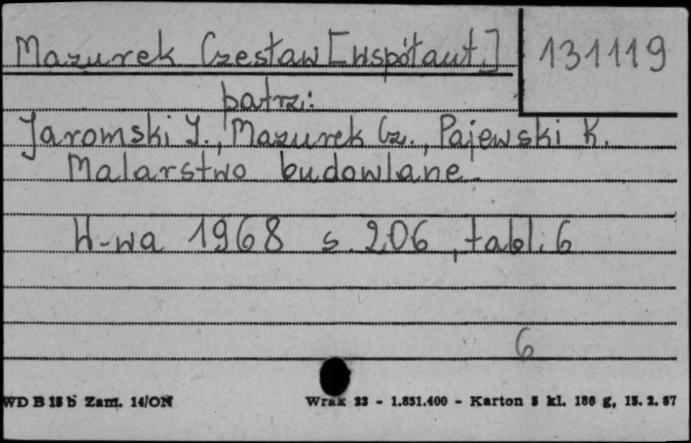 Mazurek Czesław [współaut.]
131119
patrz:
Jaromski J., Mazurek Cz., Pajewski K.
Malarstwo budowlane.
W-wa 1968 s. 206, tabl. 6
6
WD B 15 b Zam. 14/ON
Wrak 23 - 1.851.400 - Karton 5 kl. 180 g, 15. 2. 67